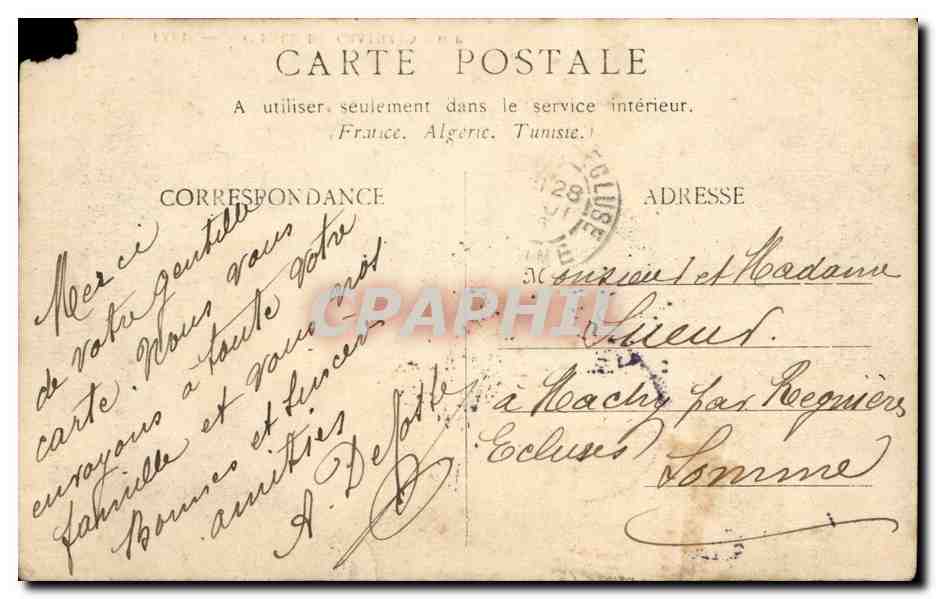 CARTE POSTALE
A utiliser seulement dans le service intérieur.
(France, Algérie, Tunisie.)
CORRESPONDANCE
Merci
de votre gentille
carte. Nous vous
envoyons à toute votre
famille et vous nos
Bonnes et Sincères
amitiés
A. Defosse
ADRESSE
Monsieur et Madame
Sueur
à Machy par Regnière
Ecluses
Somme
ECLUSE
28
CPAPHIL